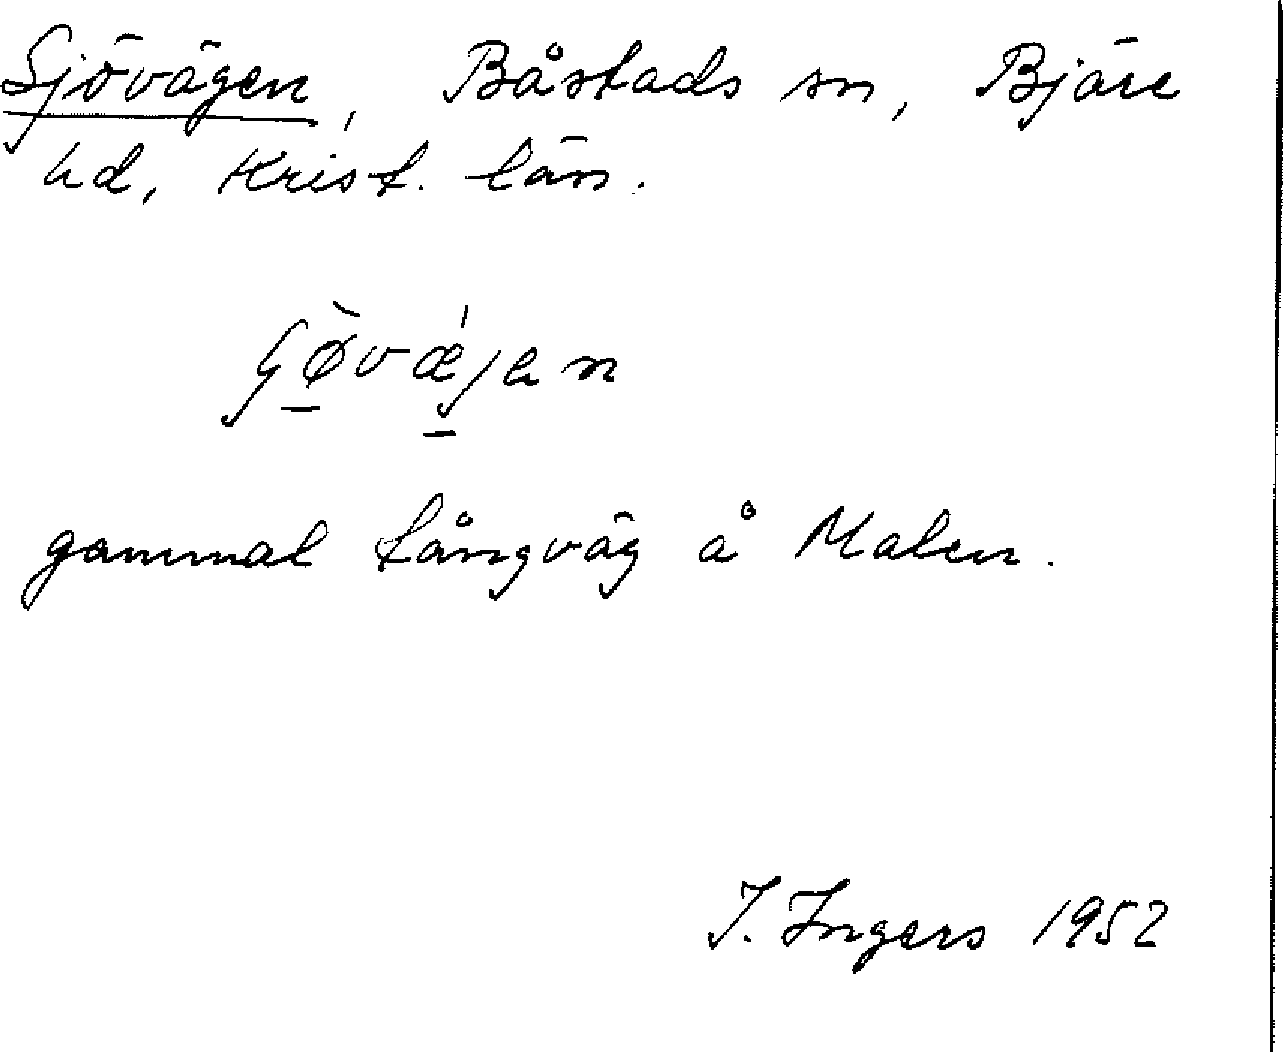 Sjövägen, Båstads sn, Bjäre
hd, Krist. län.
ʃø̱̀vǽ̱jen
gammal tångväg å Malen.
I. Ingers 1952